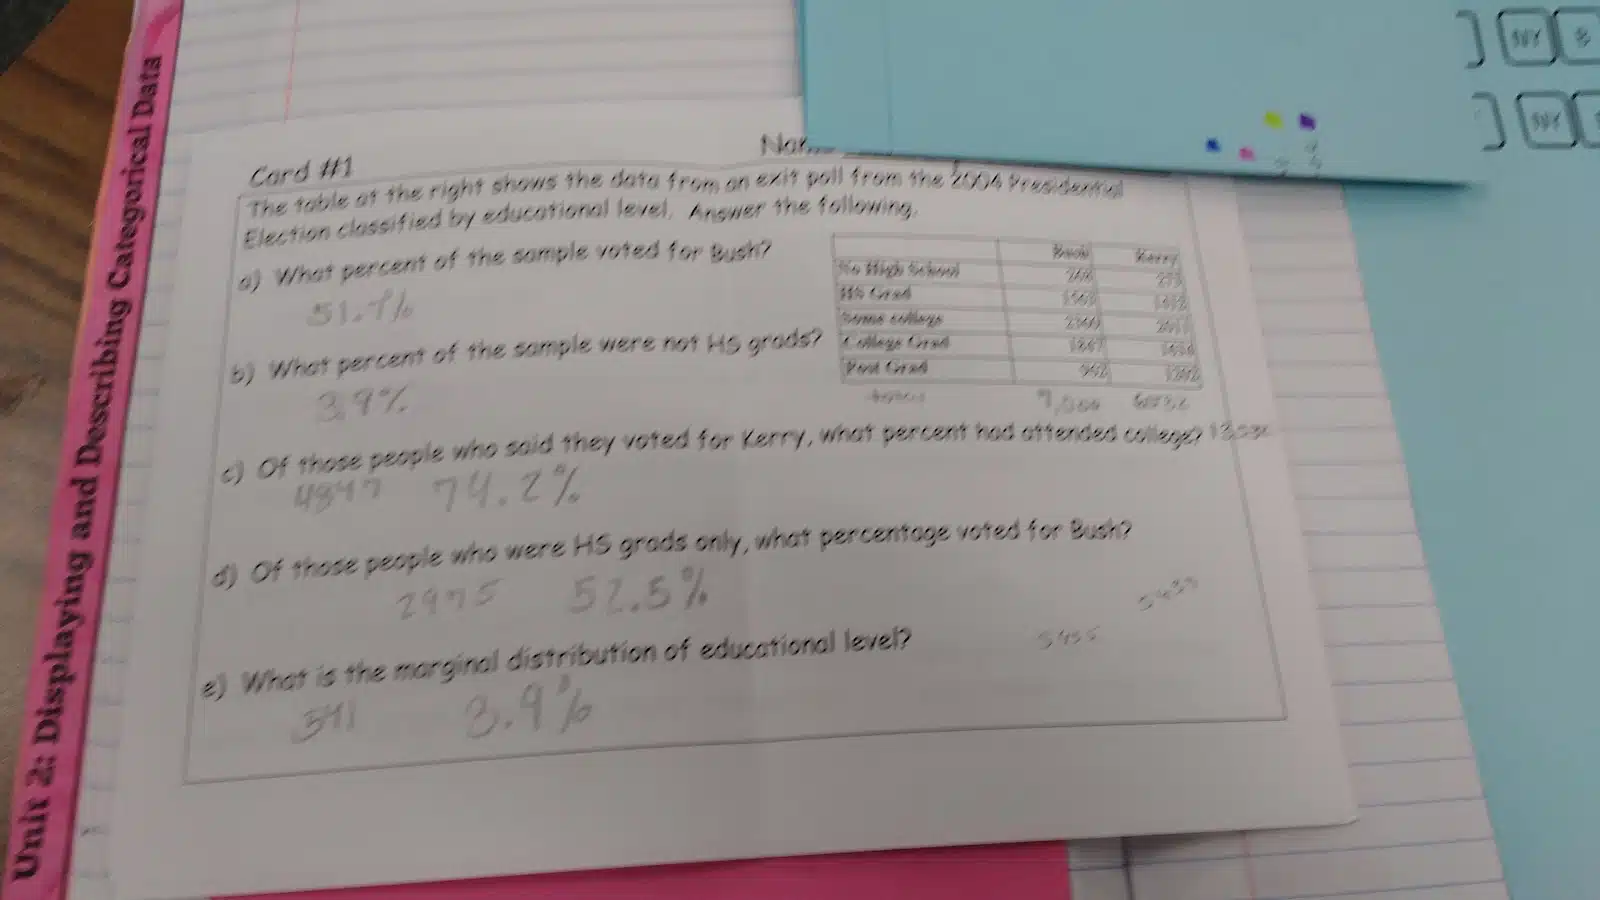 Unit 2: Displaying and Describing Categorical Data
NY B
NY
Card #1
The table at the right shows the data from an exit poll from the 2004 Presidential
Election classified by educational level. Answer the following.
a) What percent of the sample voted for Bush?
51.7%
Bush Kerry
No High School 268 273
HS Grad
Some college
College Grad
Post Grad
b) What percent of the sample were not HS grads?
3.9%
c) Of those people who said they voted for Kerry, what percent had attended college?
4847 74.2%
d) Of those people who were HS grads only, what percentage voted for Bush?
2975 52.5%
e) What is the marginal distribution of educational level?
541 3.9%